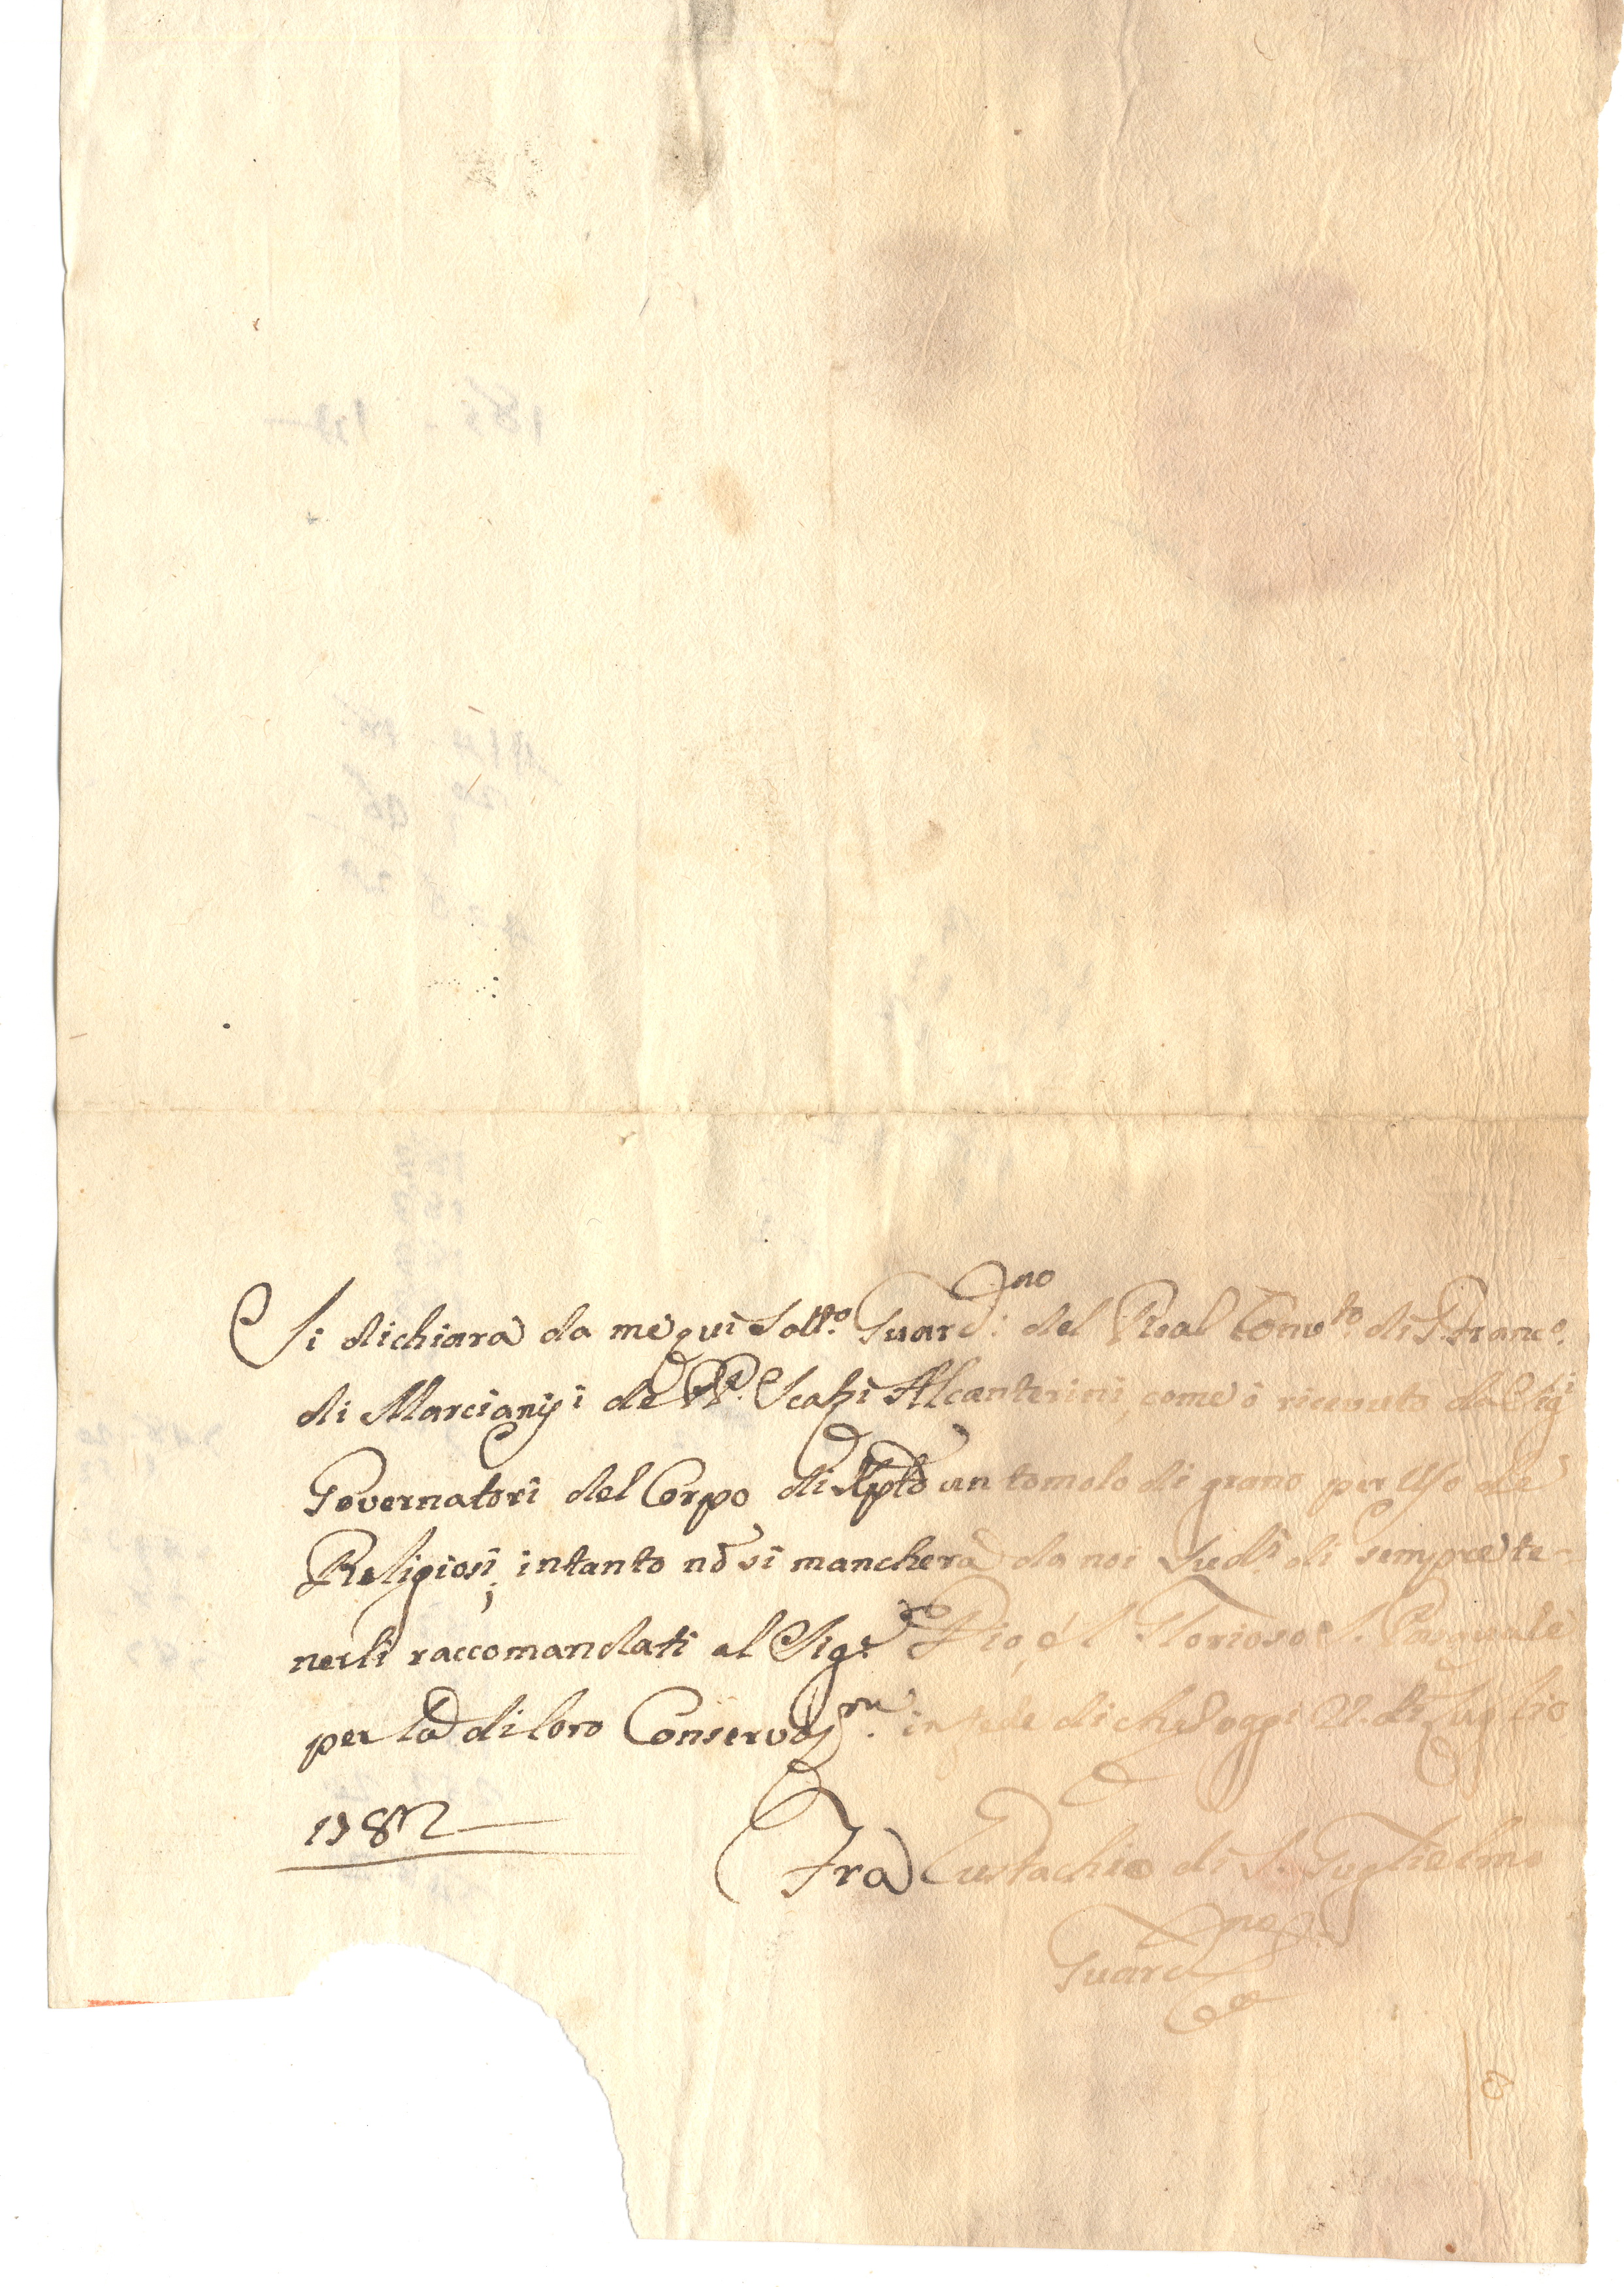 Si dichiara da me quì Sott.o Guard.no del Real Conv.to di S. Franc.o
di Marcianisi de PP. Scalzi Alcanterini come ò ricevuto da Sig.i
Governatori del Corpo di Xpto un tomolo di grano per uso de
Religiosi, intanto nō si mancherà da noi Sud.i di sempre te-
nerli raccomandati al Sig.re Dio, é l Glorioso S. Pasquale
per la di loro Conservaz.ne in fede di che oggi li Luglio
1782
Fra Eustachio di S. Guglielmo
Guard.no